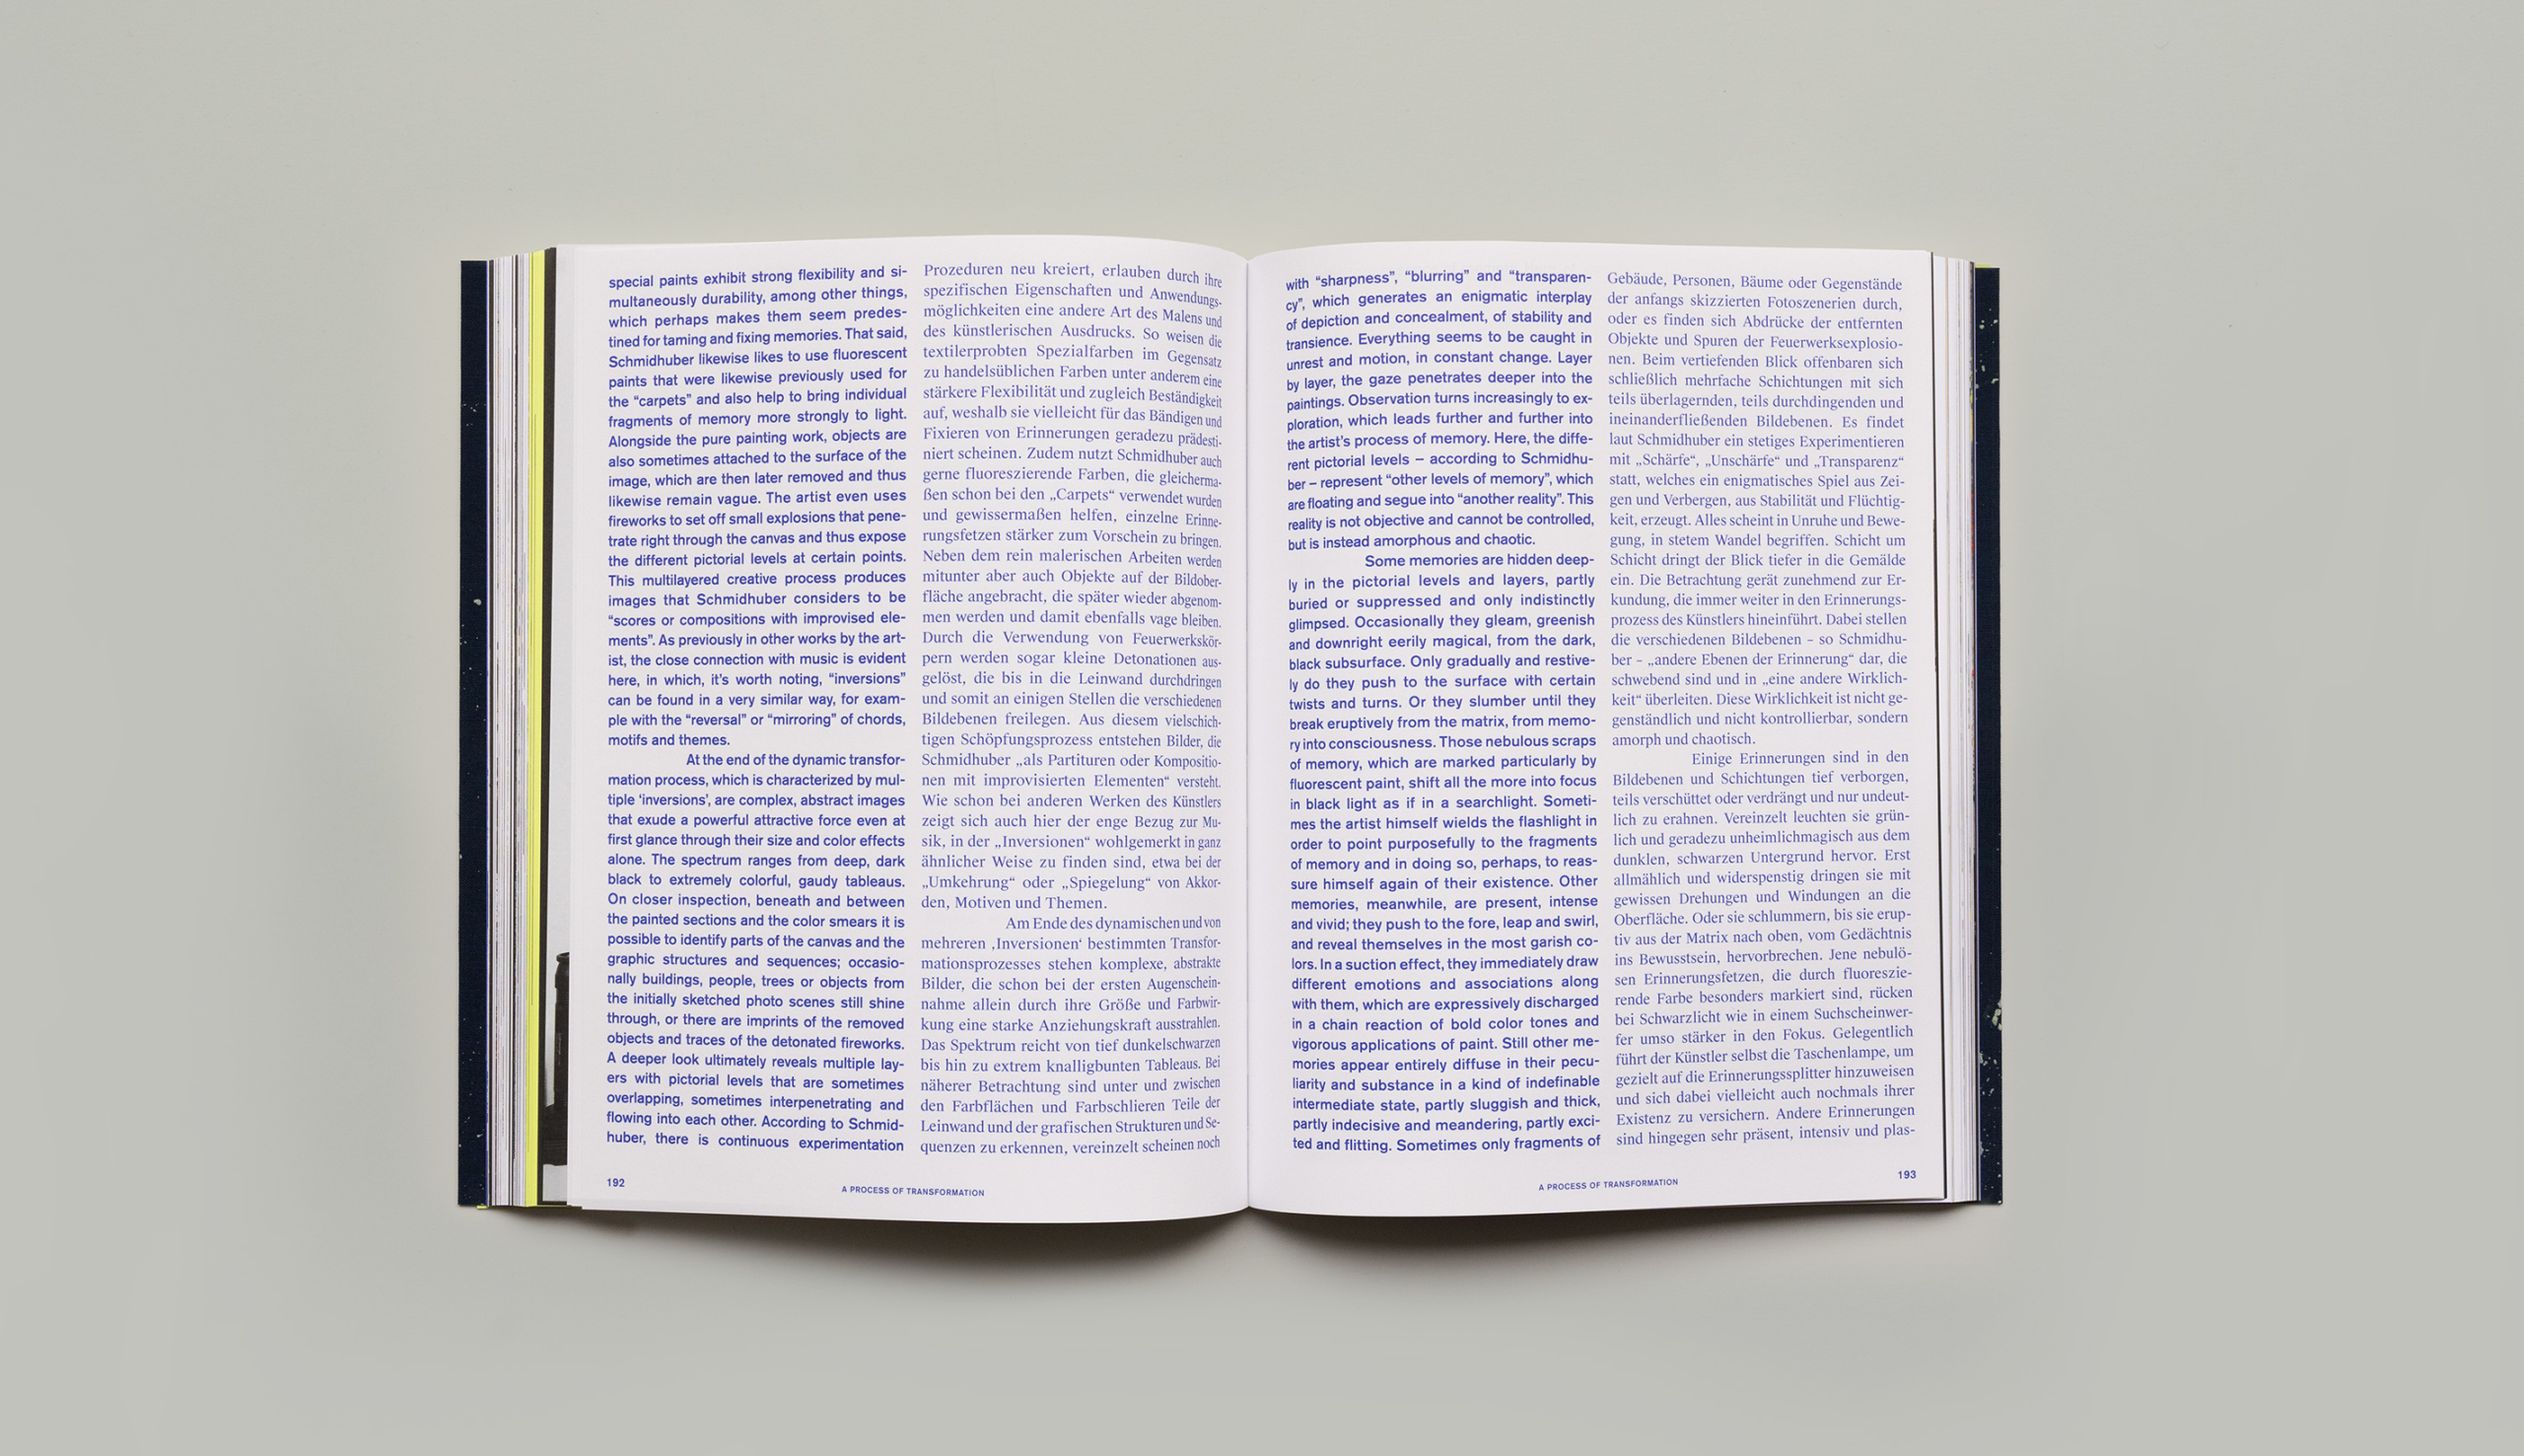 special paints exhibit strong flexibility and si-
multaneously durability, among other things,
which perhaps makes them seem predes-
tined for taming and fixing memories. That said,
Schmidhuber likewise likes to use fluorescent
paints that were likewise previously used for
the “carpets” and also help to bring individual
fragments of memory more strongly to light.
Alongside the pure painting work, objects are
also sometimes attached to the surface of the
image, which are then later removed and thus
likewise remain vague. The artist even uses
fireworks to set off small explosions that pene-
trate right through the canvas and thus expose
the different pictorial levels at certain points.
This multilayered creative process produces
images that Schmidhuber considers to be
“scores or compositions with improvised ele-
ments”. As previously in other works by the art-
ist, the close connection with music is evident
here, in which, it’s worth noting, “inversions”
can be found in a very similar way, for exam-
ple with the “reversal” or “mirroring” of chords,
motifs and themes.
At the end of the dynamic transfor-
mation process, which is characterized by mul-
tiple ‘inversions’, are complex, abstract images
that exude a powerful attractive force even at
first glance through their size and color effects
alone. The spectrum ranges from deep, dark
black to extremely colorful, gaudy tableaus.
On closer inspection, beneath and between
the painted sections and the color smears it is
possible to identify parts of the canvas and the
graphic structures and sequences; occasio-
nally buildings, people, trees or objects from
the initially sketched photo scenes still shine
through, or there are imprints of the removed
objects and traces of the detonated fireworks.
A deeper look ultimately reveals multiple lay-
ers with pictorial levels that are sometimes
overlapping, sometimes interpenetrating and
flowing into each other. According to Schmid-
huber, there is continuous experimentation
Prozeduren neu kreiert, erlauben durch ihre
spezifischen Eigenschaften und Anwendungs-
möglichkeiten eine andere Art des Malens und
des künstlerischen Ausdrucks. So weisen die
textilerprobten Spezialfarben im Gegensatz
zu handelsüblichen Farben unter anderem eine
stärkere Flexibilität und zugleich Beständigkeit
auf, weshalb sie vielleicht für das Bändigen und
Fixieren von Erinnerungen geradezu prädesti-
niert scheinen. Zudem nutzt Schmidhuber auch
gerne fluoreszierende Farben, die gleicherma-
ßen schon bei den „Carpets“ verwendet wurden
und gewissermaßen helfen, einzelne Erinne-
rungsfetzen stärker zum Vorschein zu bringen.
Neben dem rein malerischen Arbeiten werden
mitunter aber auch Objekte auf der Bildober-
fläche angebracht, die später wieder abgenom-
men werden und damit ebenfalls vage bleiben.
Durch die Verwendung von Feuerwerkskör-
pern werden sogar kleine Detonationen aus-
gelöst, die bis in die Leinwand durchdringen
und somit an einigen Stellen die verschiedenen
Bildebenen freilegen. Aus diesem vielschich-
tigen Schöpfungsprozess entstehen Bilder, die
Schmidhuber „als Partituren oder Kompositio-
nen mit improvisierten Elementen“ versteht.
Wie schon bei anderen Werken des Künstlers
zeigt sich auch hier der enge Bezug zur Mu-
sik, in der „Inversionen“ wohlgemerkt in ganz
ähnlicher Weise zu finden sind, etwa bei der
„Umkehrung“ oder „Spiegelung“ von Akkor-
den, Motiven und Themen.
Am Ende des dynamischen und von
mehreren ‚Inversionen‘ bestimmten Transfor-
mationsprozesses stehen komplexe, abstrakte
Bilder, die schon bei der ersten Augenschein-
nahme allein durch ihre Größe und Farbwir-
kung eine starke Anziehungskraft ausstrahlen.
Das Spektrum reicht von tief dunkelschwarzen
bis hin zu extrem knalligbunten Tableaus. Bei
näherer Betrachtung sind unter und zwischen
den Farbflächen und Farbschlieren Teile der
Leinwand und der grafischen Strukturen und Se-
quenzen zu erkennen, vereinzelt scheinen noch
192
A PROCESS OF TRANSFORMATION
with “sharpness”, “blurring” and “transparen-
cy”, which generates an enigmatic interplay
of depiction and concealment, of stability and
transience. Everything seems to be caught in
unrest and motion, in constant change. Layer
by layer, the gaze penetrates deeper into the
paintings. Observation turns increasingly to ex-
ploration, which leads further and further into
the artist’s process of memory. Here, the diffe-
rent pictorial levels – according to Schmidhu-
ber – represent “other levels of memory”, which
are floating and segue into “another reality”. This
reality is not objective and cannot be controlled,
but is instead amorphous and chaotic.
Some memories are hidden deep-
ly in the pictorial levels and layers, partly
buried or suppressed and only indistinctly
glimpsed. Occasionally they gleam, greenish
and downright eerily magical, from the dark,
black subsurface. Only gradually and restive-
ly do they push to the surface with certain
twists and turns. Or they slumber until they
break eruptively from the matrix, from memo-
ry into consciousness. Those nebulous scraps
of memory, which are marked particularly by
fluorescent paint, shift all the more into focus
in black light as if in a searchlight. Someti-
mes the artist himself wields the flashlight in
order to point purposefully to the fragments
of memory and in doing so, perhaps, to reas-
sure himself again of their existence. Other
memories, meanwhile, are present, intense
and vivid; they push to the fore, leap and swirl,
and reveal themselves in the most garish co-
lors. In a suction effect, they immediately draw
different emotions and associations along
with them, which are expressively discharged
in a chain reaction of bold color tones and
vigorous applications of paint. Still other me-
mories appear entirely diffuse in their pecu-
liarity and substance in a kind of indefinable
intermediate state, partly sluggish and thick,
partly indecisive and meandering, partly exci-
ted and flitting. Sometimes only fragments of
Gebäude, Personen, Bäume oder Gegenstände
der anfangs skizzierten Fotoszenerien durch,
oder es finden sich Abdrücke der entfernten
Objekte und Spuren der Feuerwerksexplosio-
nen. Beim vertiefenden Blick offenbaren sich
schließlich mehrfache Schichtungen mit sich
teils überlagernden, teils durchdingenden und
ineinanderfließenden Bildebenen. Es findet
laut Schmidhuber ein stetiges Experimentieren
mit „Schärfe“, „Unschärfe“ und „Transparenz“
statt, welches ein enigmatisches Spiel aus Zei-
gen und Verbergen, aus Stabilität und Flüchtig-
keit, erzeugt. Alles scheint in Unruhe und Bewe-
gung, in stetem Wandel begriffen. Schicht um
Schicht dringt der Blick tiefer in die Gemälde
ein. Die Betrachtung gerät zunehmend zur Er-
kundung, die immer weiter in den Erinnerungs-
prozess des Künstlers hineinführt. Dabei stellen
die verschiedenen Bildebenen – so Schmidhu-
ber – „andere Ebenen der Erinnerung“ dar, die
schwebend sind und in „eine andere Wirklich-
keit“ überleiten. Diese Wirklichkeit ist nicht ge-
genständlich und nicht kontrollierbar, sondern
amorph und chaotisch.
Einige Erinnerungen sind in den
Bildebenen und Schichtungen tief verborgen,
teils verschüttet oder verdrängt und nur undeut-
lich zu erahnen. Vereinzelt leuchten sie grün-
lich und geradezu unheimlichmagisch aus dem
dunklen, schwarzen Untergrund hervor. Erst
allmählich und widerspenstig dringen sie mit
gewissen Drehungen und Windungen an die
Oberfläche. Oder sie schlummern, bis sie erup-
tiv aus der Matrix nach oben, vom Gedächtnis
ins Bewusstsein, hervorbrechen. Jene nebulö-
sen Erinnerungsfetzen, die durch fluoreszie-
rende Farbe besonders markiert sind, rücken
bei Schwarzlicht wie in einem Suchscheinwer-
fer umso stärker in den Fokus. Gelegentlich
führt der Künstler selbst die Taschenlampe, um
gezielt auf die Erinnerungssplitter hinzuweisen
und sich dabei vielleicht auch nochmals ihrer
Existenz zu versichern. Andere Erinnerungen
sind hingegen sehr präsent, intensiv und plas-
A PROCESS OF TRANSFORMATION
193